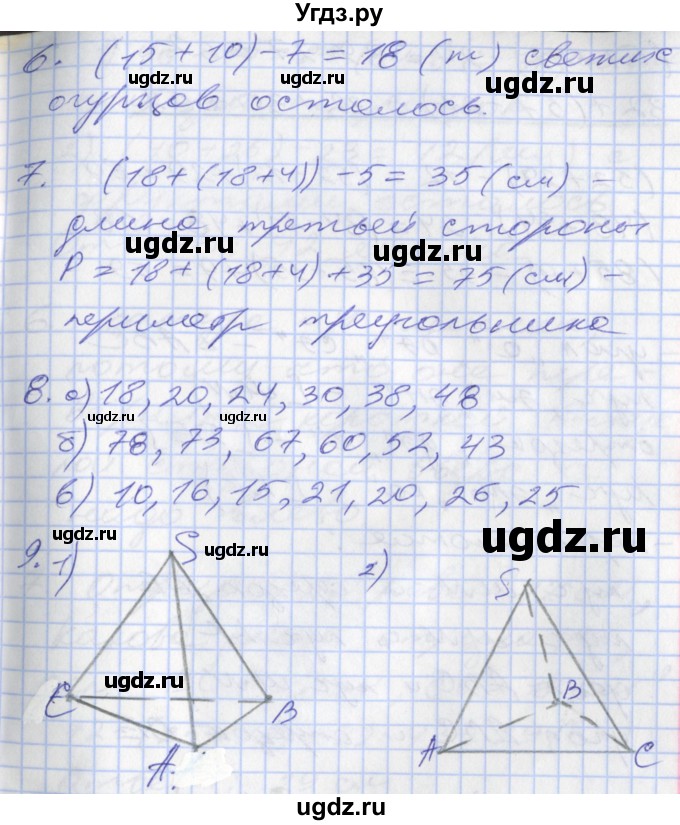 Угдз.ру
6. (15 + 10) - 7 = 18 (т) свежих
ugdz.ru ugdz.ru ugdz.ru
огурцов осталось.
7. (18 + (18 + 4)) - 5 = 35 (см) -
длина третьей стороны
ugdz.ru ugdz.ru
P = 18 + (18 + 4) + 35 = 75 (см) -
периметр треугольника
8. а) 18, 20, 24, 30, 38, 48
ugdz.ru ugdz.ru
б) 78, 73, 67, 60, 52, 43
в) 10, 16, 15, 21, 20, 26, 25
ugdz.ru ugdz.ru ugdz.ru
9. 1) S 2) S
ugdz.ru
C B B
A A C
ugdz.ru